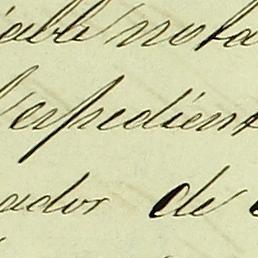 able nota
expedient
ador de